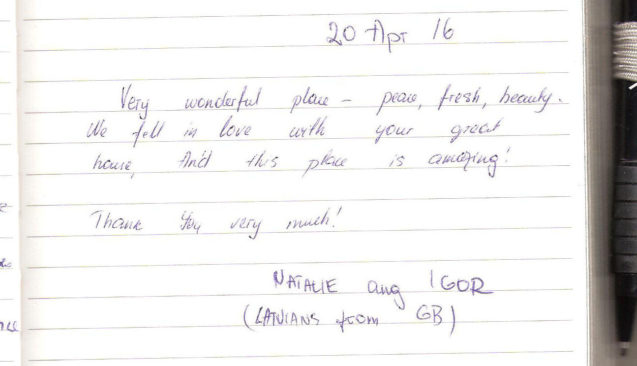 20 Apr 16
Very wonderful place – peace, fresh, beauty.
We fell in love with your great
house, And this place is amazing!
Thank You very much!
NATALIE ang IGOR
(LATVIANS from GB)